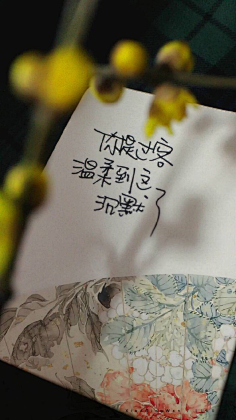 你是过客
温柔到这
沉默了